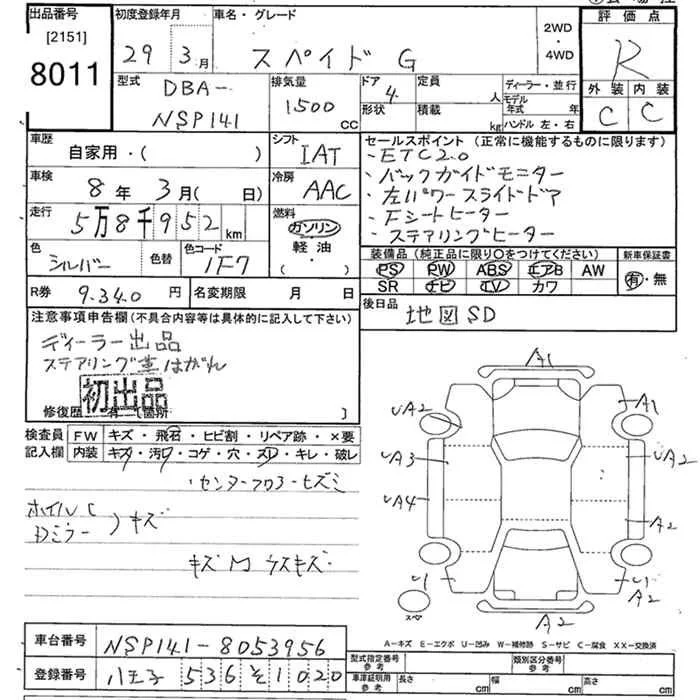 出品番号
[2151]
8011
初度登録年月
29年 3月
車名・グレード
スペイド G
2WD・4WD
評価点
R
型式
DBA-
NSP141
排気量
1500 cc
ドア
4
形状
定員 人
積載 kg
ディーラー・並行
モデル年式 年
ハンドル 左・右
外装 内装
C C
車歴
自家用・( )
シフト
IAT
セールスポイント (正常に機能するものに限ります)
・ETC2.0
・バックガイドモニター
・左パワースライドドア
・Fシートヒーター
・ステアリングヒーター
車検
8年 3月( 日)
冷房
AAC
走行
5万8千952km
燃料
ガソリン
軽油
・( )
色
シルバー
色替
色コード
1F7
装備品 (純正品に限り○をつけてください)
PS PW ABS エアB AW
SR ナビ TV カワ
新車保証書
有・無
R券 9.340円
名変期限 月 日
後日品
地図SD
注意事項申告欄(不具合内容等は具体的に記入して下さい)
ディーラー出品
ステアリング革はがれ
初出品
修復歴 有 [箇所 ]
検査員
記入欄
FW キズ・飛石・ヒビ割・リペア跡・×要
内装 キズ・汚ワ・コゲ・穴・スレ・キレ・破レ
・センターフロアーヒズミ
ホイル
Dミラー
)キズ
キズM ウスキズ・
A1
UA2
A1
UA3
UA2
UA4
A2
U1
U1
A2
スペア
A2
A-キズ E-エクボ U-凹み W-補修跡 S-サビ C-腐食 XX-交換済
車台番号 NSP141-8053956
登録番号 八王子 536 そ 1020
型式指定番号 参考
類別区分番号 参考
車庫証明用 参考
長さ cm 幅 cm 高さ cm